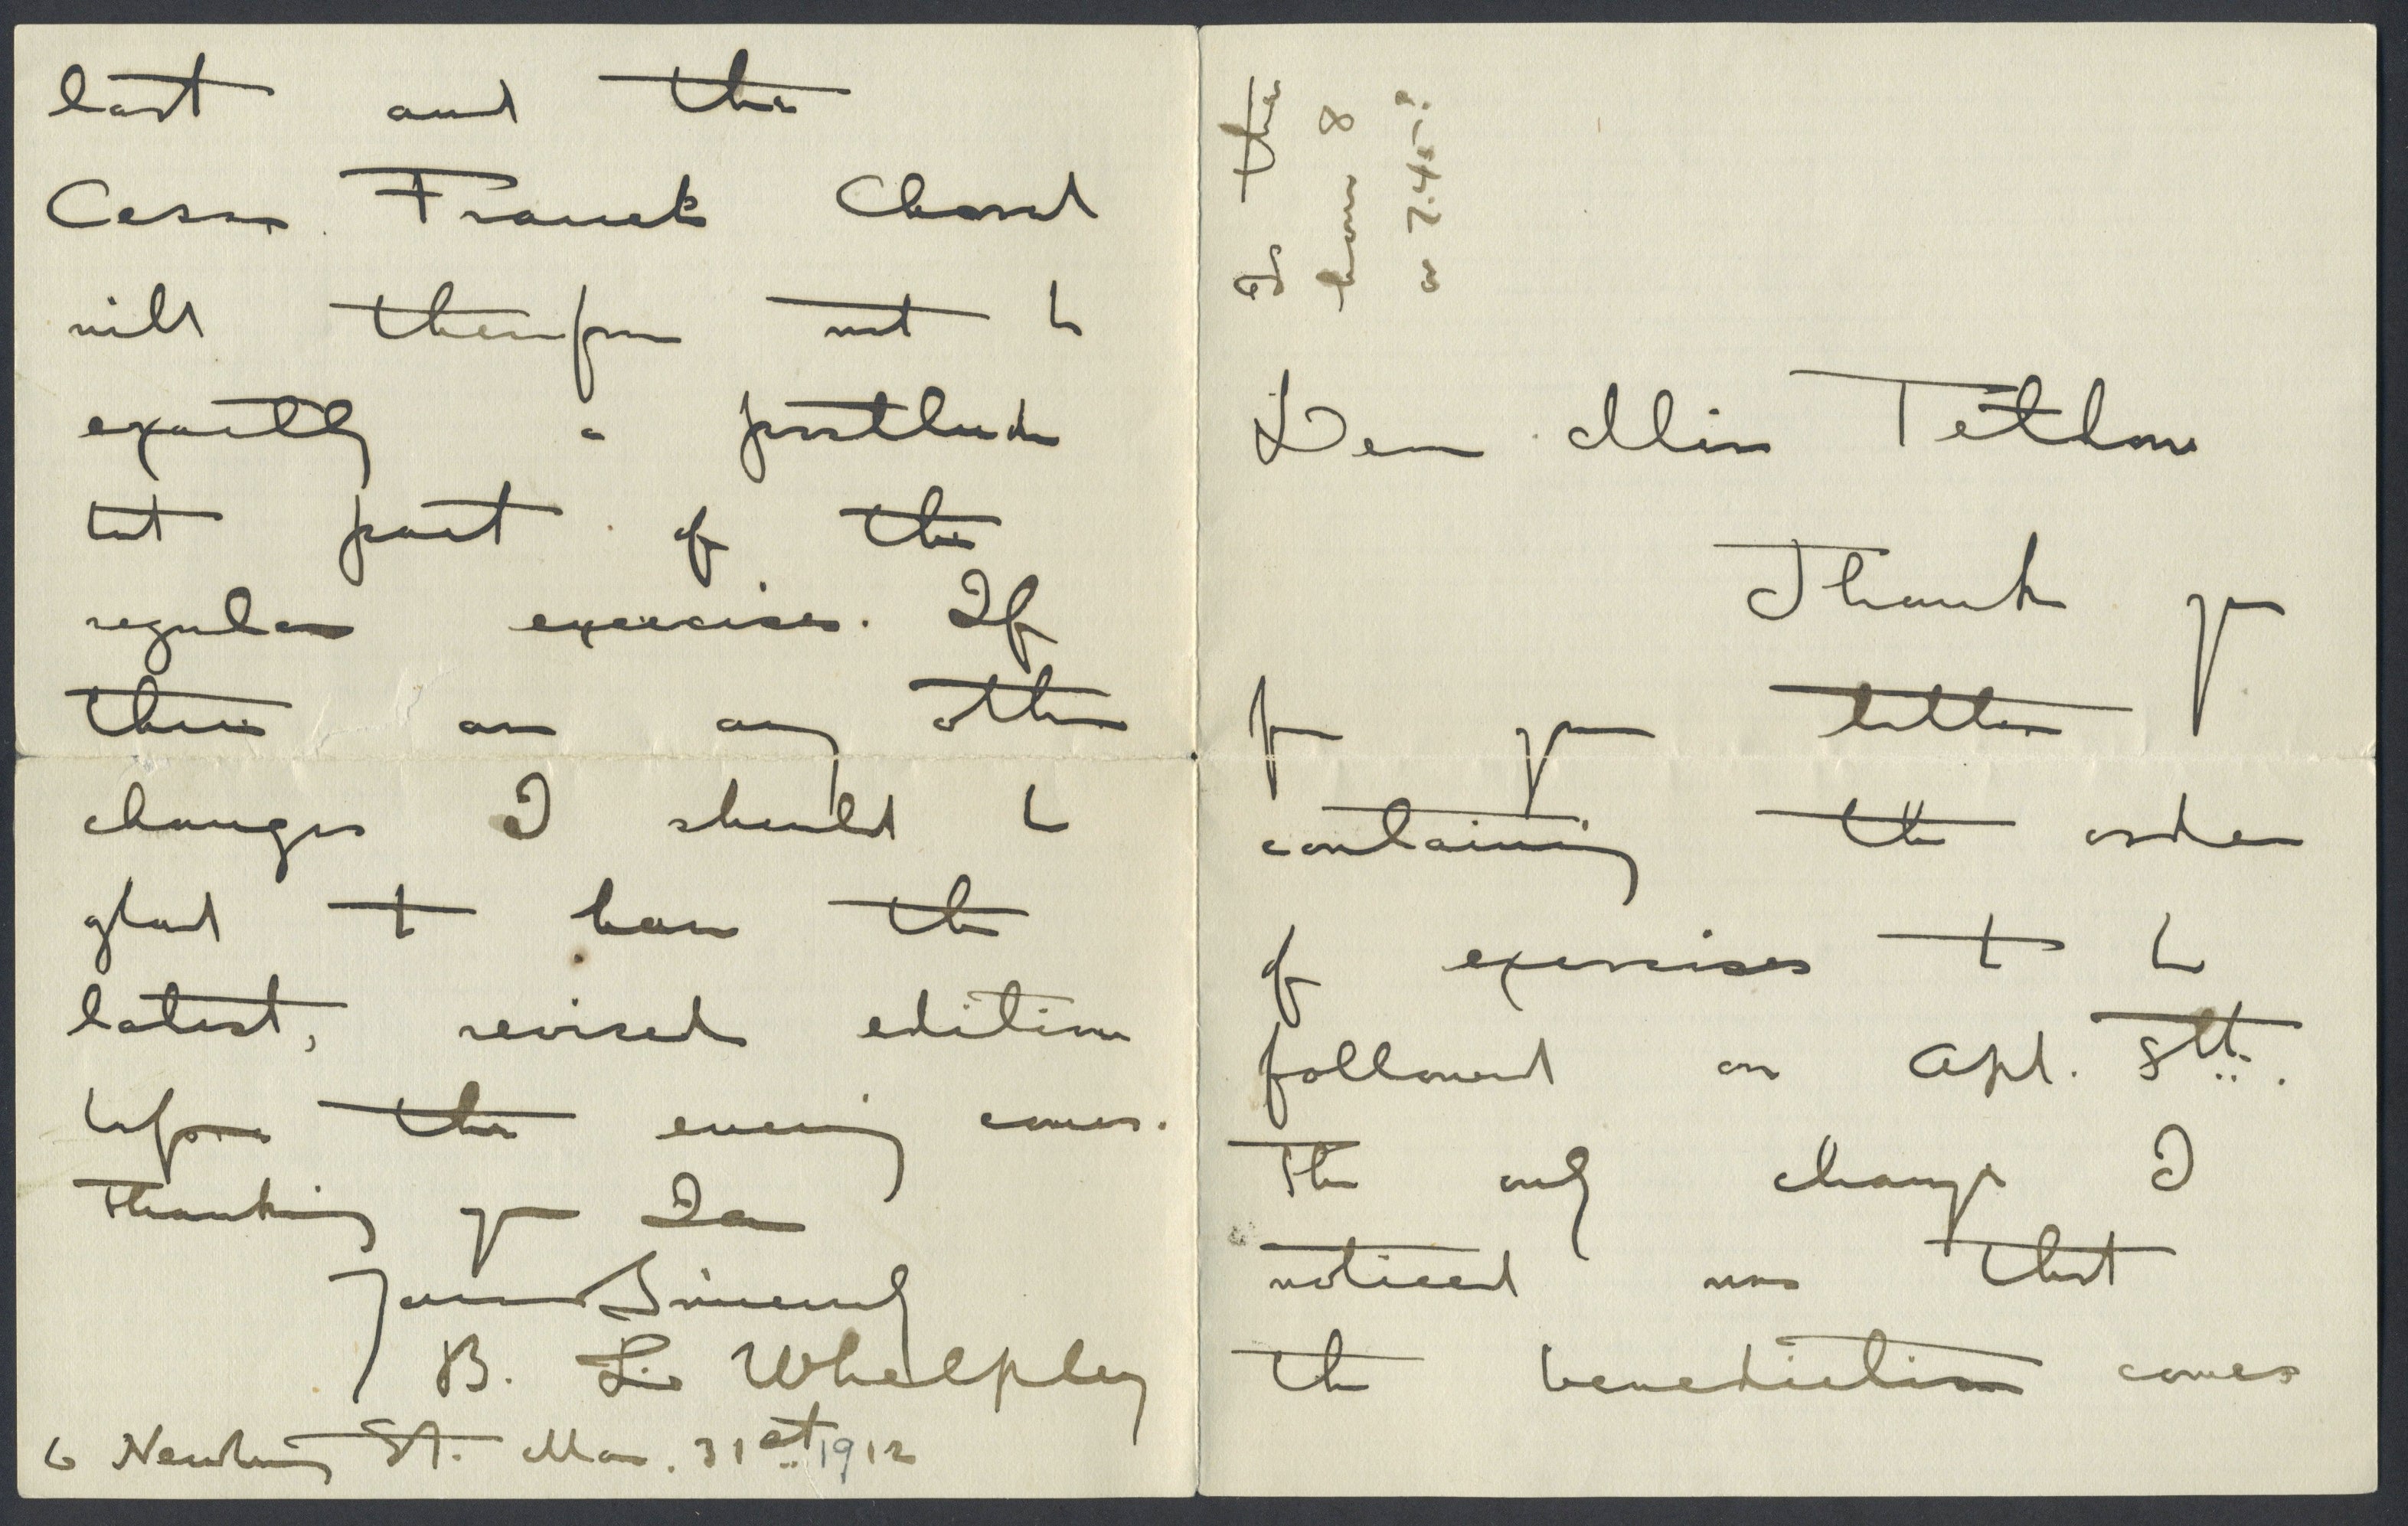 Dear Miss Tetlow
Thank you
for your letter
containing the order
of exercises to be
followed on Apl. 8th.
The only change I
noticed was that
the benediction comes
last and the
Cesar Franck Choral
will therefore not be
exactly a postlude
but part of the
regular exercises. If
there are any other
changes I should be
glad to have the
latest, revised edition
before the evening comes.
Thanking you I am
Yours Sincerely
B. L. Whelpley
6 Newbury St. Mar. 31st 1912
Is the
hour 8
or 7.45?